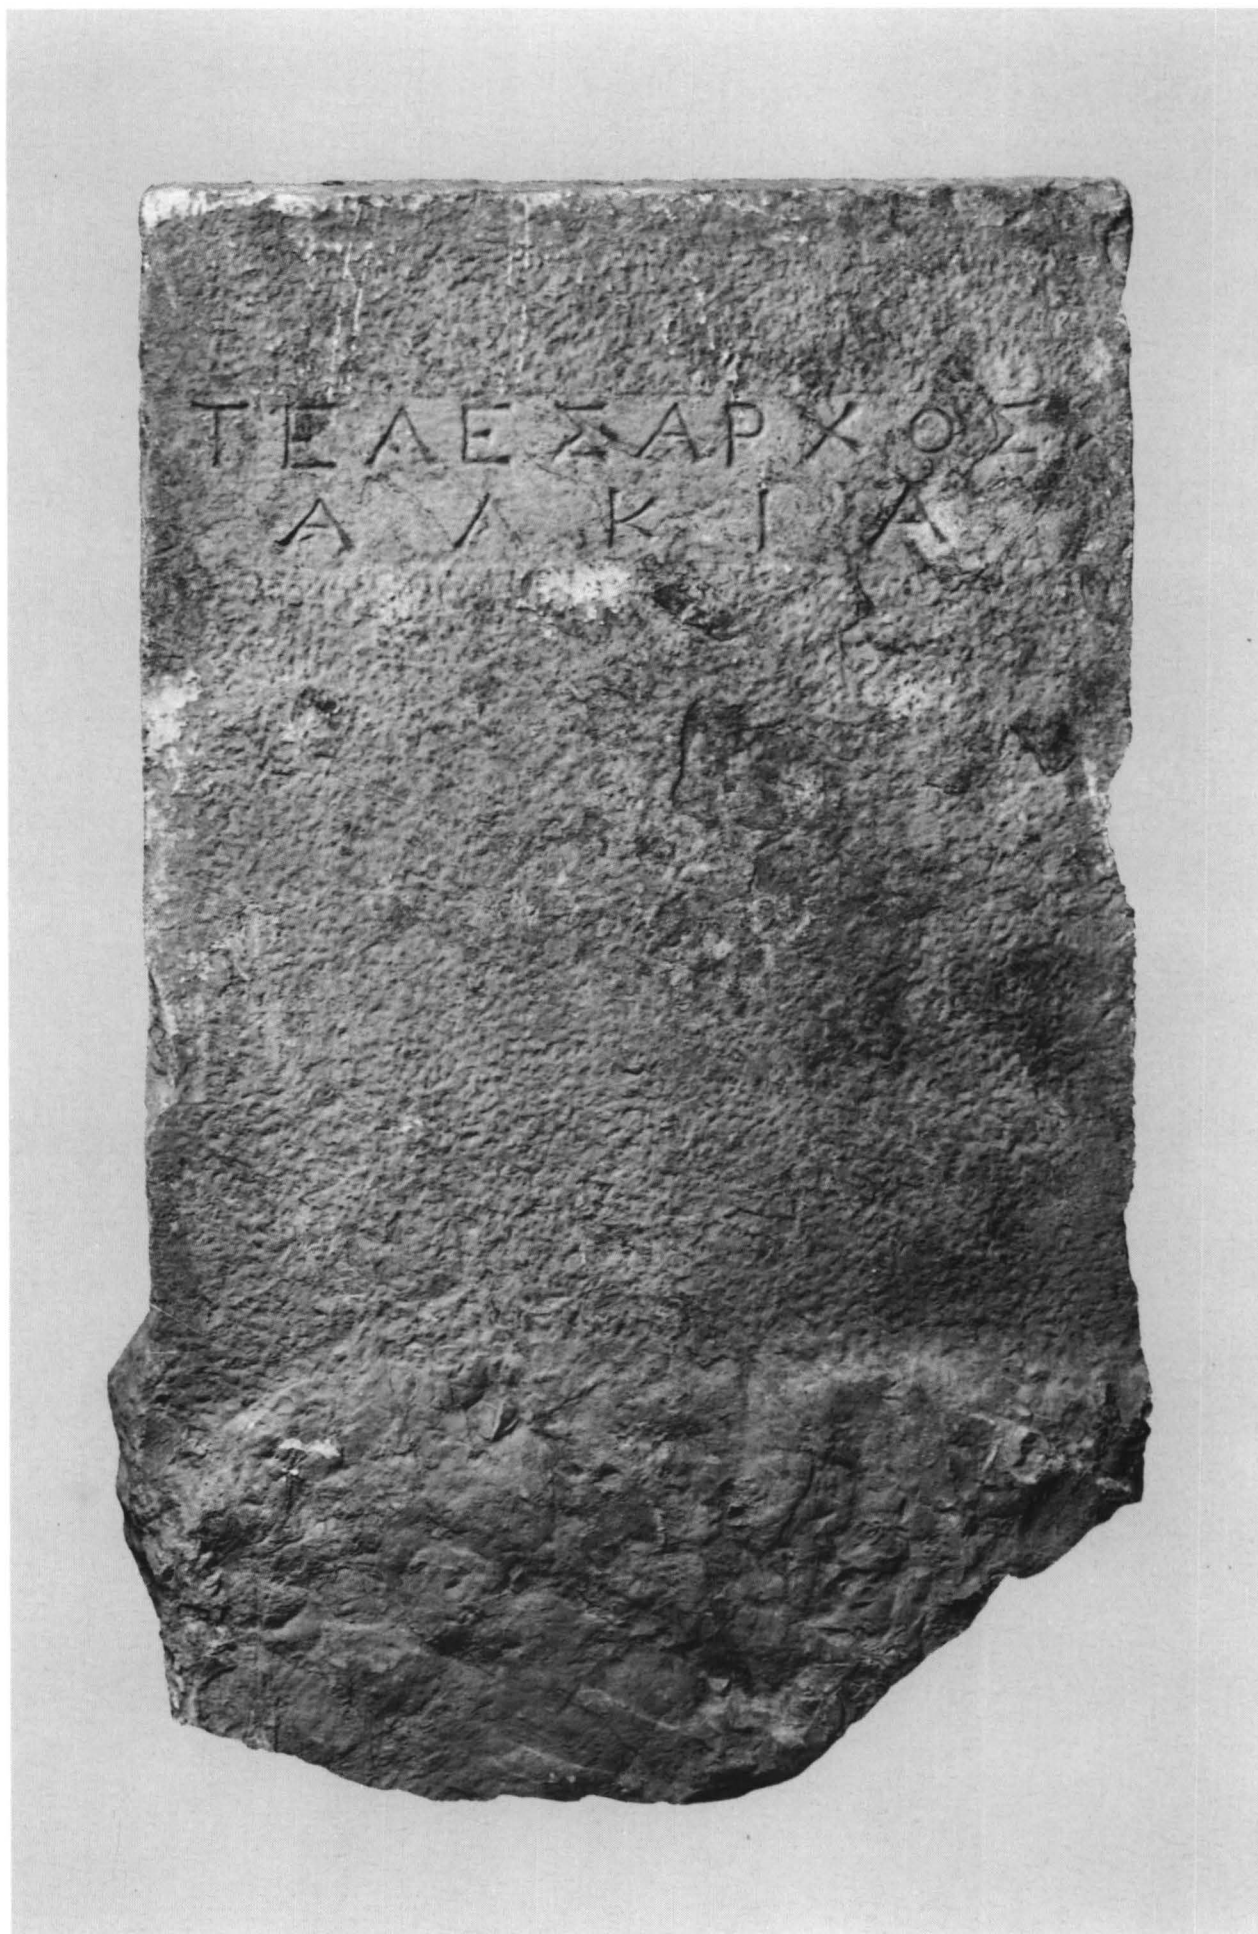 ΤΕΛΕΣΑΡΧΟΣ
ΑΛΚΙΑ